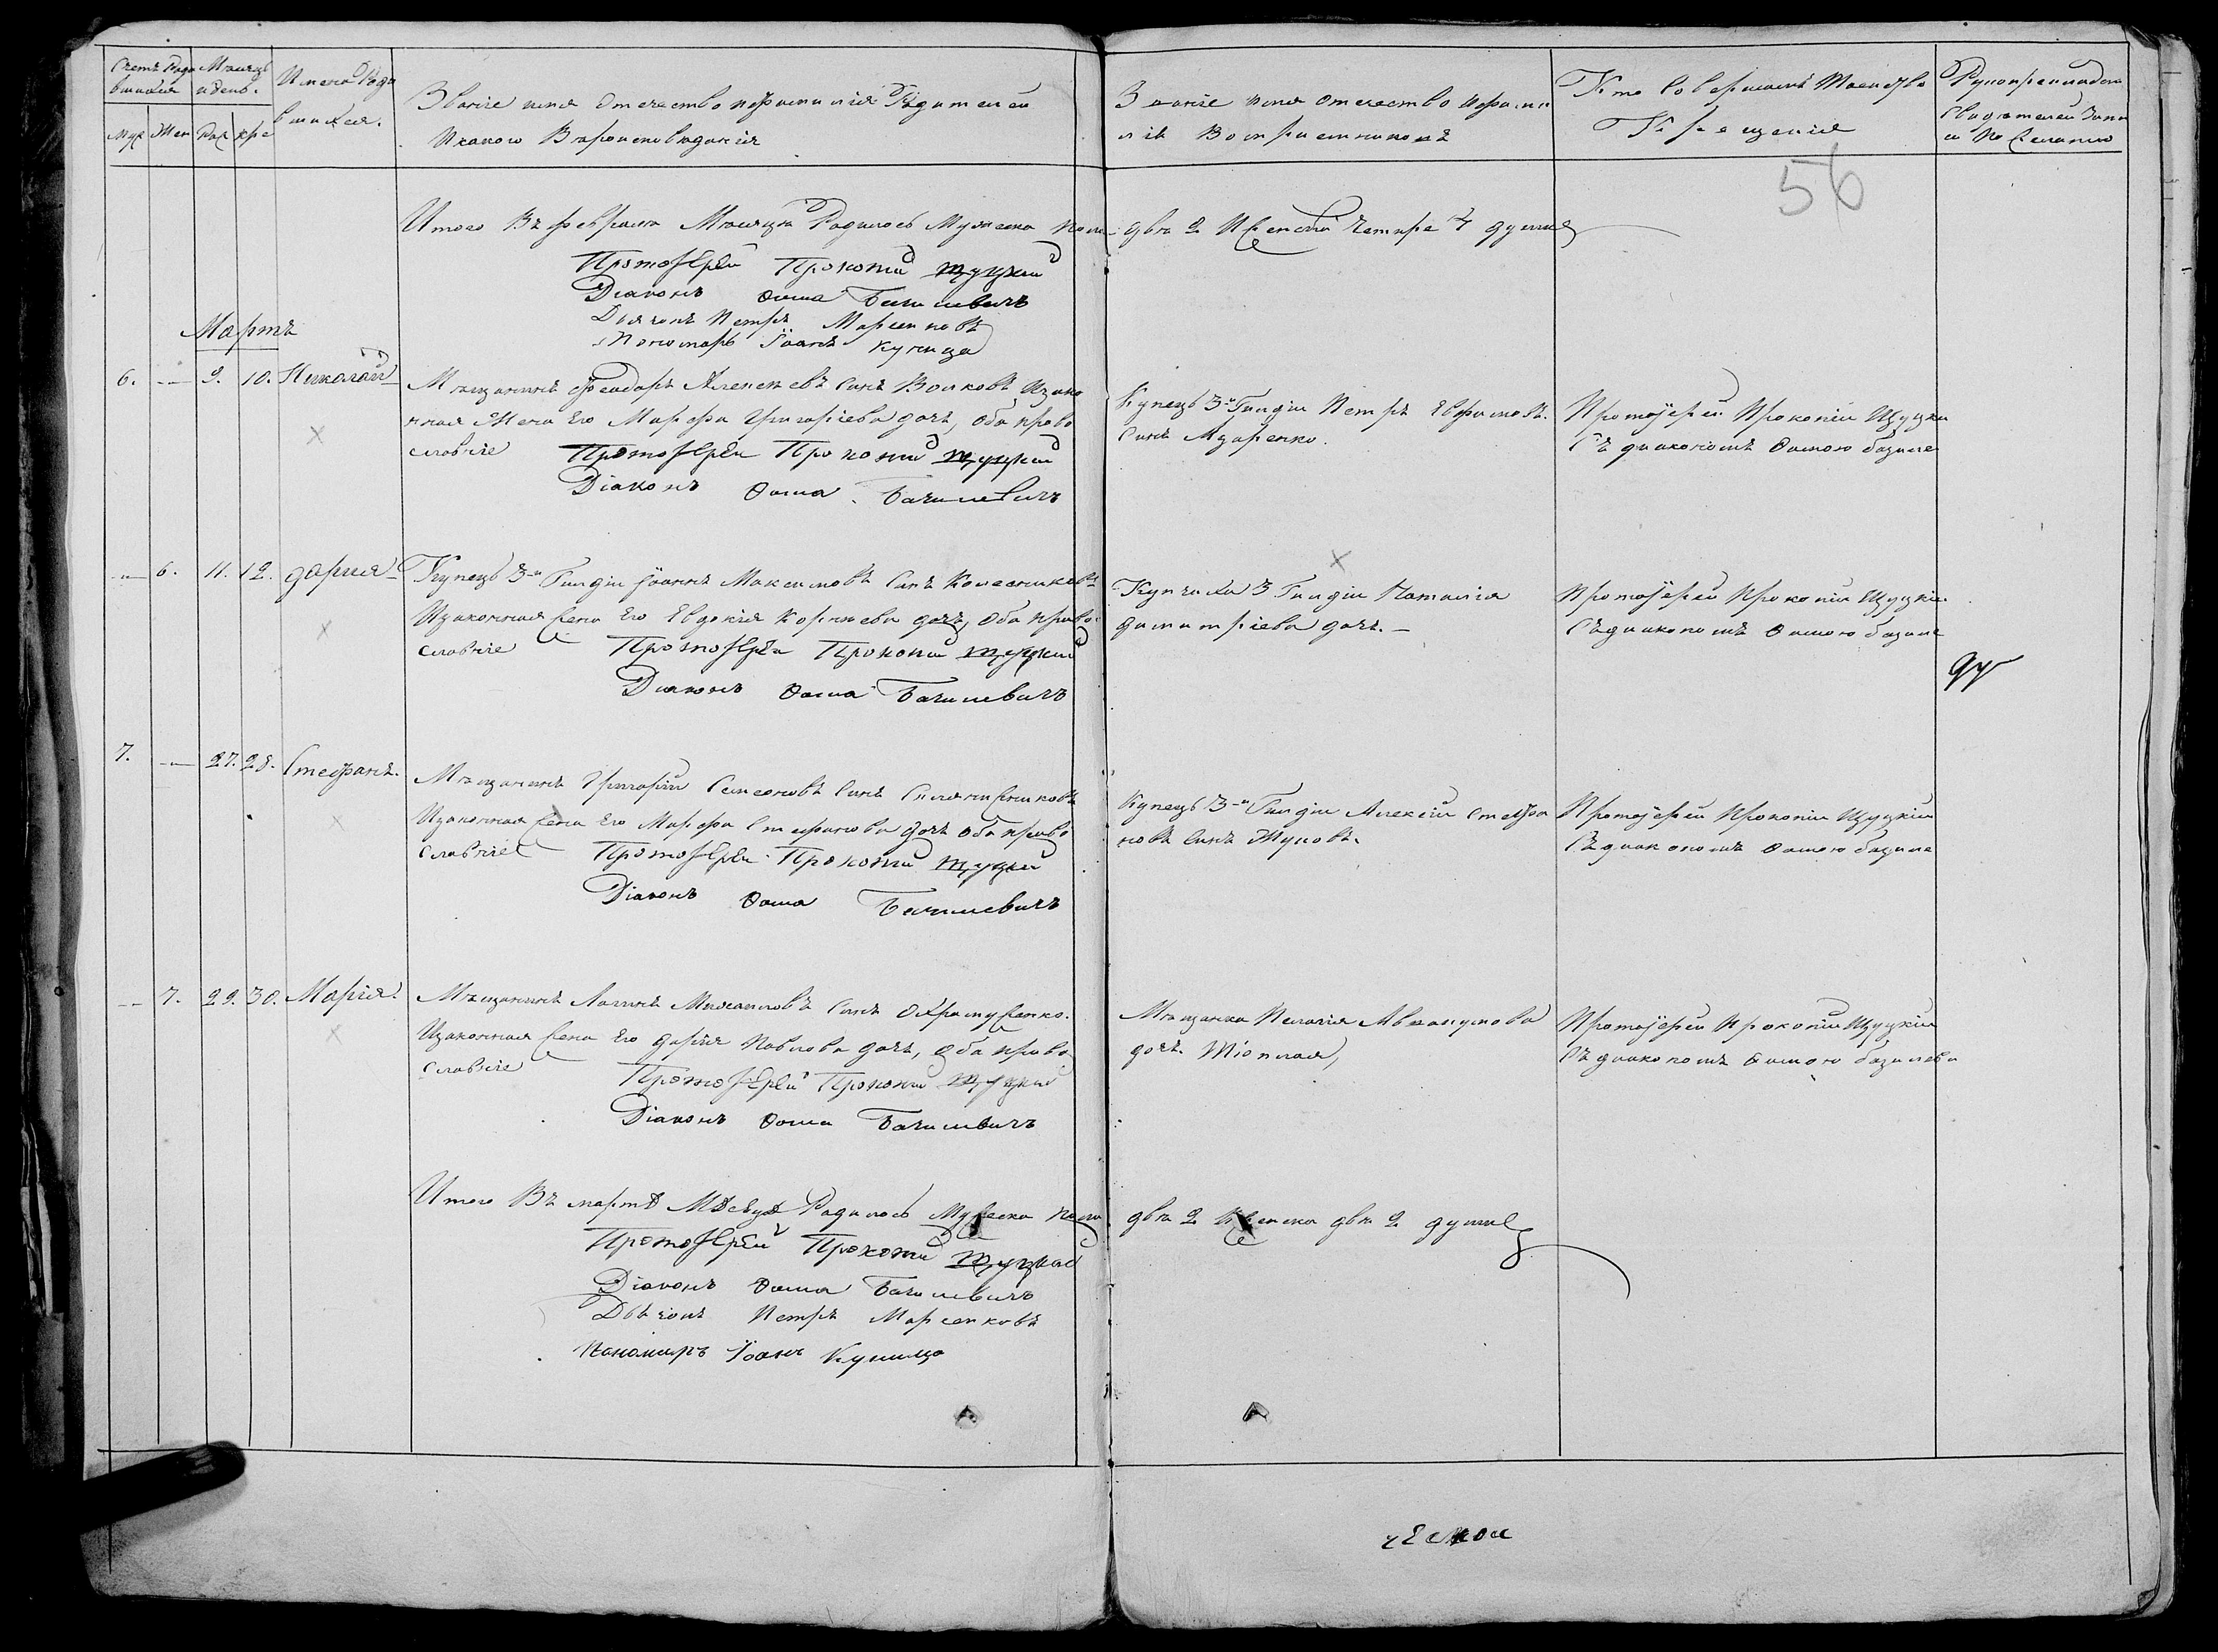 Счетъ Родившихся
Мѣсяцъ и день.
Имена Родившихся.
Званіе имя Отечество и фамилія Родителей
И какого Вѣроисповѣданія
Званіе имя отечество и фамилія Воспріемниковъ
Кто Совершалъ Таинство Крещенія
Рукоприкладство Свидетелей Записи По Желанію
Муж Жен Рож Кре
56
Итого Въ февралѣ Мѣсяцѣ Родилось Мужеска пола двѣ 2 И Женска Четыре 4 души
Протоіерей Прокопій Щуцкій
Діаконъ Ѳома Базилевичъ
Дьячокъ Петръ Марченковъ
Пономарь Іоанъ Куница
Мартъ
6. — 9. 10. Николай
Мѣщанинъ Феодоръ Алексѣевъ Сынъ Волковъ Изако
нная Жена Его Марфа Григоріева дочь, оба право
славніе
Протоіерей Прокопій Щуцкій
Діаконъ Ѳома Базилевичъ
Купецъ 3-й Гилдіи Петръ Евфимовъ
Сынъ Мзаренко.
Протоіерей Прокопій Щуцкій
Съ діакономъ Ѳомою базиле
— 6. 11. 12. дарія
Купецъ 3-й Гилдіи Іоаннъ Максимовъ Сынъ Колесниковъ
Изаконная Жена Его Евдокія Корнѣева дочь, Оба право
славніе
Протоіерей Прокопій Щуцкій
Діаконъ Ѳома Базилевичъ
Купчиха 3 Гилдіи Наталія
димитріева дочь. —
Протоіерей Прокопій Щуцкій
Съ діакономъ Ѳомою базиле
7. — 27. 28. Стефанъ.
Мѣщанинъ Григорій Самсоновъ Сынъ
Изаконная Жена Его Марфа Стефанова дочь оба право
славніе
Протоіерей Прокопій Щуцкій
Діаконъ Ѳома Базилевичъ
Купецъ 3-й Гилдіи Алексій Стефа
новъ Сынъ Жуковъ.
Протоіерей Прокопій Щуцкій
Съ діакономъ Ѳомою базиле
— 7. 29. 30. Марія.
Мѣщанинъ Логинъ Михаиловъ Сынъ Охрамуженко.
Изаконная Жена Его Дарія Павлова дочь, оба право
славніе
Протоіерей Прокопій Щуцкій
Діаконъ Ѳома Базилевичъ
Мѣщанка Пелагія Авакумова
дочь.
Протоіерей Прокопій Щуцкій
Съ діакономъ Ѳомою базилеви
Итого Въ мартѣ Мѣсецѣ Родилось Мужеска пола двѣ 2 Женска двѣ 2 души
Протоіерей Прокопій Щуцкій
Діаконъ Ѳома Базилевичъ
Дьячокъ Петръ Марченковъ
Пономаръ Іоанъ Куница